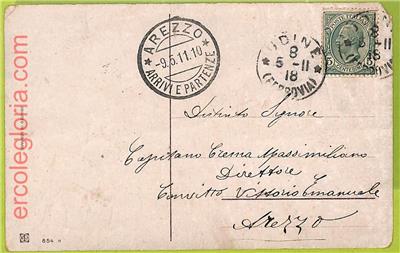 ercolegloria.com
AREZZO
-9.5.11.10
ARRIVI E PARTENZE
UDINE
8
5-11
18
(FERROVIA)
POSTE ITALIANE
8
5-11
18
Distinto Signore
Capitano Crema Massimiliano
Direttore
Convitto Vittorio Emanuele
Arezzo
854